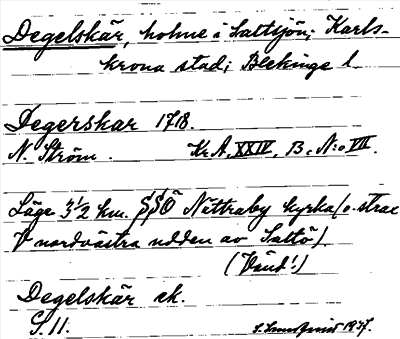 Degelskär, holme i Saltsjön; Karls-
krona stad; Blekinge l.
Degerskar 1718.
N. Ström. Kr. A, XXIV, B. N:o VII.
Läge 3 1/2 km. SSÖ Nättraby kyrka (o. strax
V nordvästra udden av Saltö).
(Vänd!)
Degelskär ek.
S. 11. 1937.